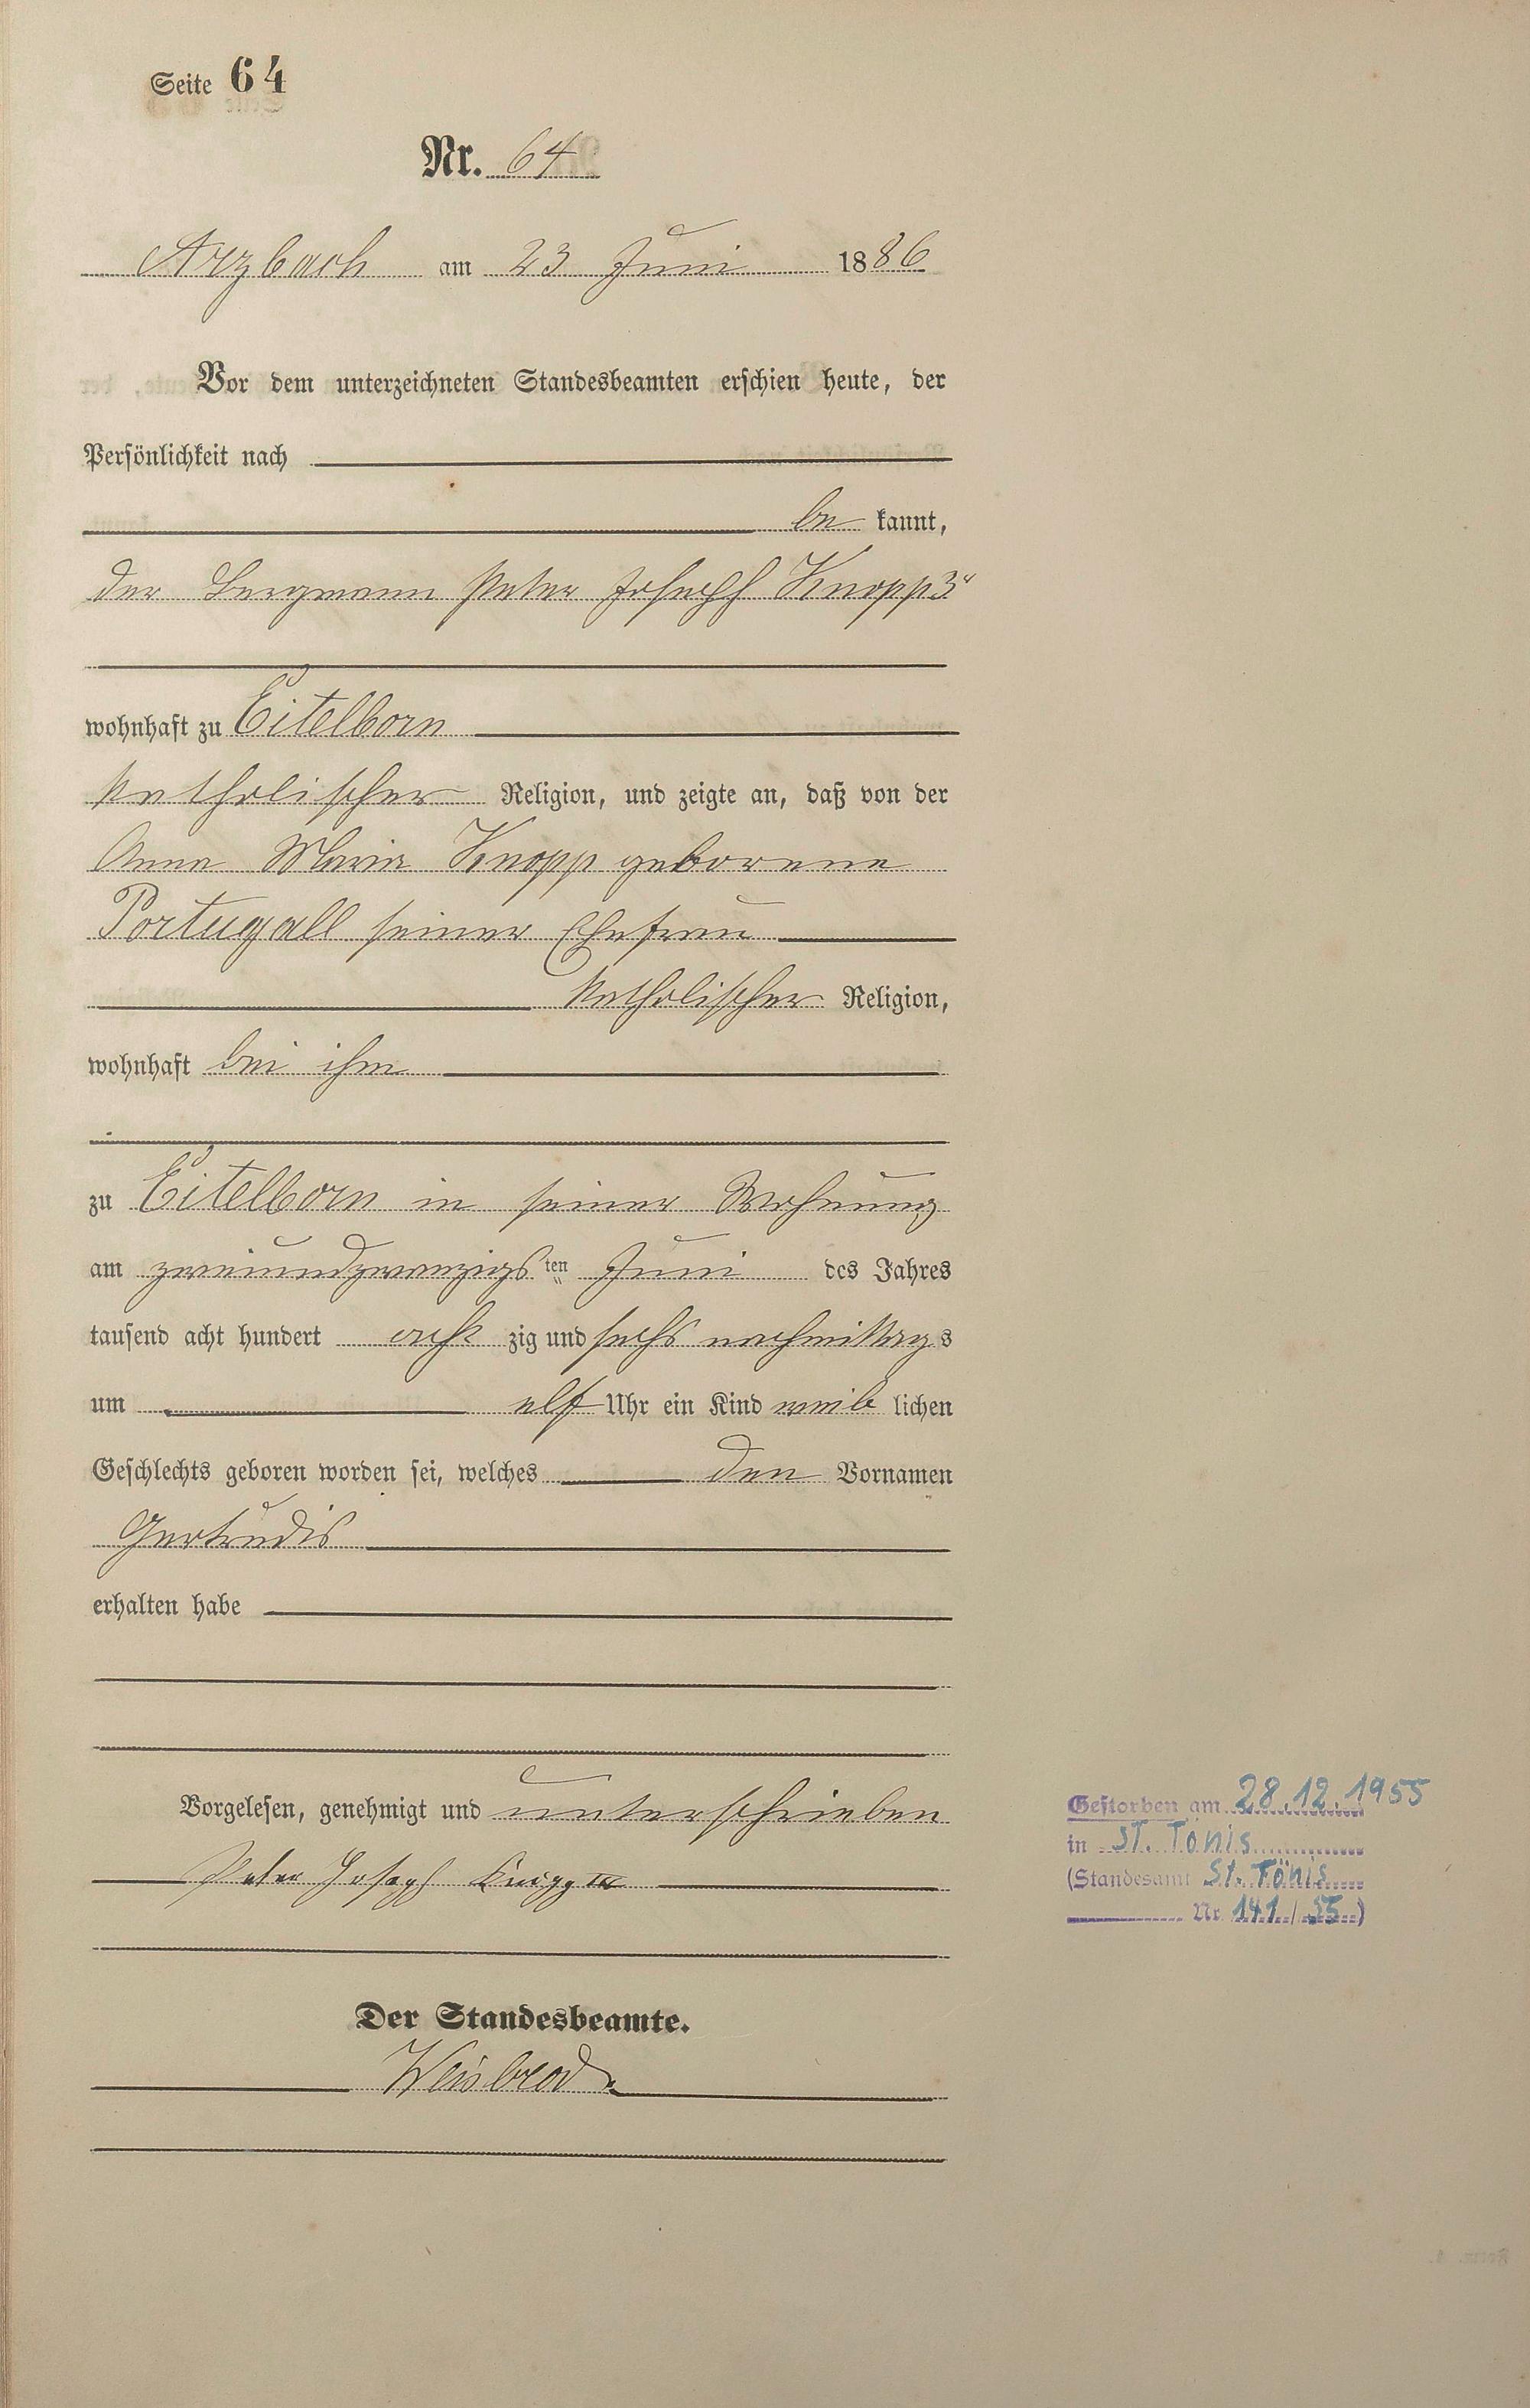 Seite 64
Nr. 64
Arzbach am 23 Juni 1886
Vor dem unterzeichneten Standesbeamten erschien heute, der
Persönlichkeit nach
be kannt,
der Bergmann Peter Joseph Knopp 3r
wohnhaft zu Eitelborn
katholischer Religion, und zeigte an, daß von der
Anna Maria Knopp geborene
Portugall seiner Ehefrau
katholischer Religion,
wohnhaft bei ihm
zu Eitelborn in seiner Wohnung
am zweiundzwanzigs ten Juni des Jahres
tausend acht hundert acht zig und sechs nachmittags
um elf Uhr ein Kind weib lichen
Geschlechts geboren worden sei, welches den Vornamen
Gertrudis
erhalten habe
Vorgelesen, genehmigt und unterschrieben
Peter Joseph Knopp III
Der Standesbeamte.
Weisbrod
Gestorben am 28.12.1955
in St. Tönis
(Standesamt St. Tönis
Nr. 141 / 55)